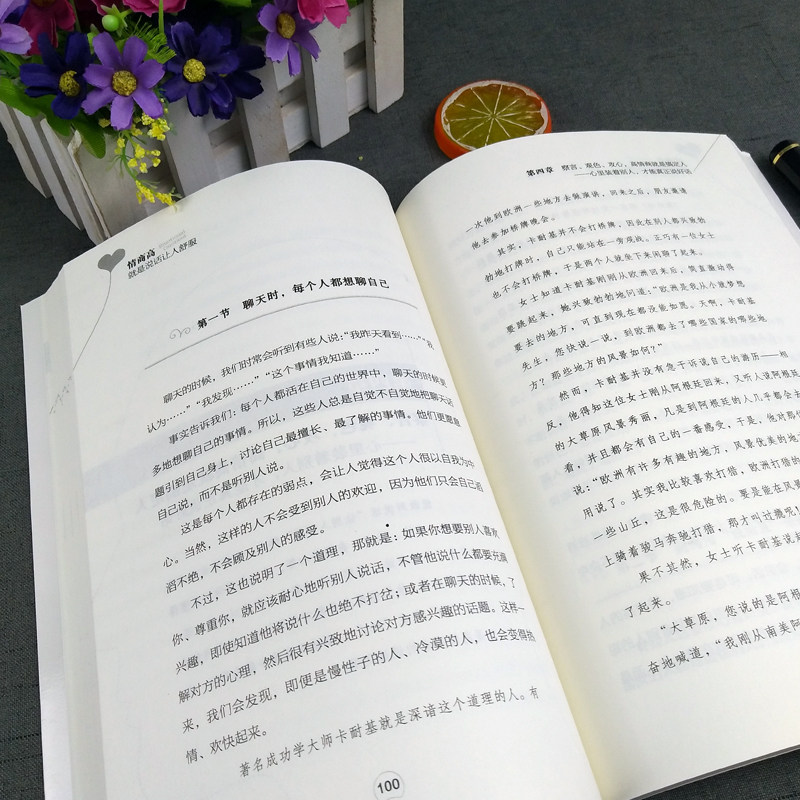 情商高
就是说话让人舒服
第一节 聊天时，每个人都想聊自己
聊天的时候，我们时常会听到有些人说：“我昨天看到……”“我
认为……”“我发现……”“这个事情我知道……”
事实告诉我们：每个人都活在自己的世界中，聊天的时候更
多地想聊自己的事情。所以，这些人总是自觉不自觉地把聊天话
题引到自己身上，讨论自己最擅长、最了解的事情。他们更愿意
自己说，而不是听别人说。
这是每个人都存在的弱点，会让人觉得这个人很以自我为中
心。当然，这样的人不会受到别人的欢迎，因为他们只会自己滔
滔不绝，不会顾及别人的感受。
不过，这也说明了一个道理，那就是：如果你想要别人喜欢
你、尊重你，就应该耐心地听别人说话，不管他说什么都要充满
兴趣，即使知道他将说什么也绝不打岔；或者在聊天的时候，了
解对方的心理，然后很有兴致地讨论对方感兴趣的话题。这样一
来，我们会发现，即便是慢性子的人、冷漠的人，也会变得热
情、欢快起来。
著名成功学大师卡耐基就是深谙这个道理的人。有
100
第四章 察言、观色、攻心，高情商就是搞定人
——心里装着别人，才能真正说好话
一次他到欧洲一些地方去做演讲，回来之后，朋友邀请
他去参加桥牌晚会。
其实，卡耐基并不会打桥牌，因此在别人都兴致勃
勃地打牌时，自己只能站在一旁观战。正巧有一位女士
也不会打桥牌，于是两个人就坐下来闲聊了起来。
女士知道卡耐基刚刚从欧洲回来后，简直激动得
要跳起来，她兴致勃勃地问道：“欧洲是我从小就梦想
要去的地方，可直到现在都没能如愿。天啊，卡耐基
先生，您快说一说，到欧洲都去了哪些国家的哪些地
方？那些地方的风景如何？”
然而，卡耐基并没有急于诉说自己的游历——相
反，他得知这位女士刚从阿根廷回来，又听人说阿根廷
的大草原风景秀丽，凡是到阿根廷的人几乎都会去
看，并且都会有自己的一番感受，于是，他对那位
说：“欧洲有许多有趣的地方，风景优美的地
用说了。其实我比较喜欢打猎，欧洲打猎的
一些山丘，这是很危险的。要是能在风
上骑着骏马奔驰打猎，那才叫过瘾呢！
果不其然，女士听卡耐基说起
了起来。
“大草原，您说的是阿根
奋地喊道，“我刚从南美阿